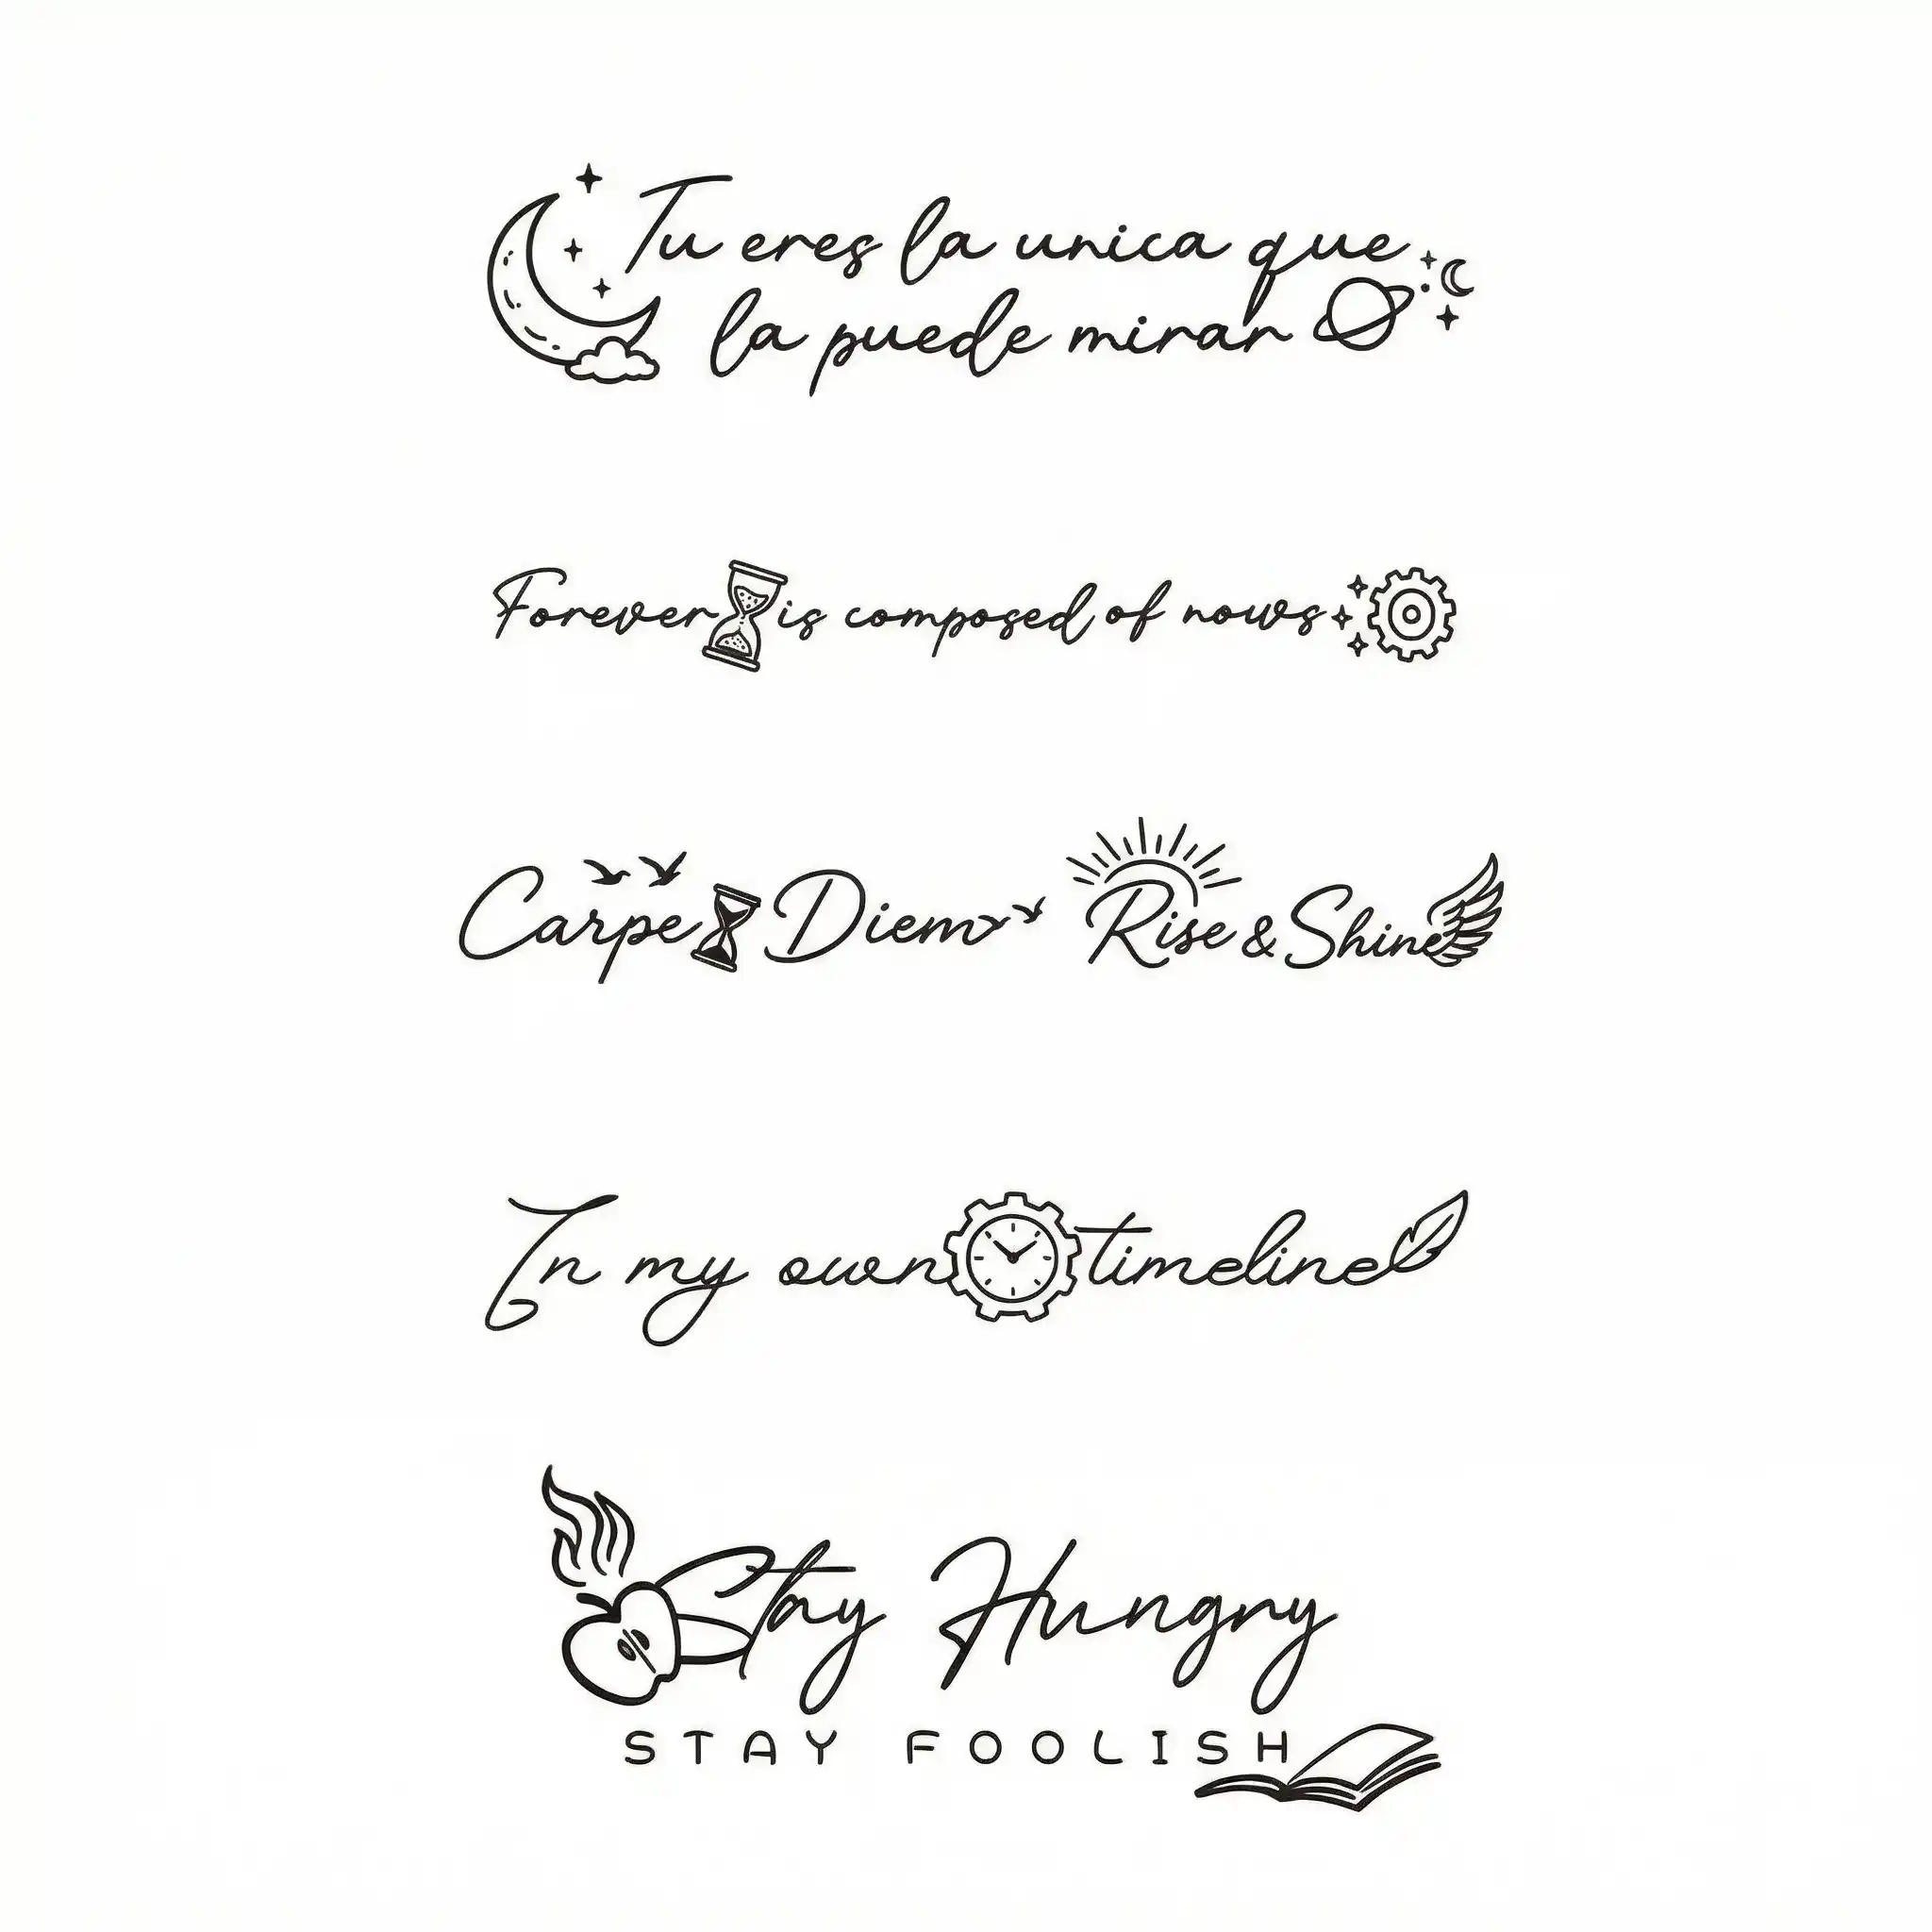 Tu eres la unica que
la puede mirar
Forever is composed of nows
Carpe Diem Rise & Shine
In my own timeline
Stay Hungry
STAY FOOLISH